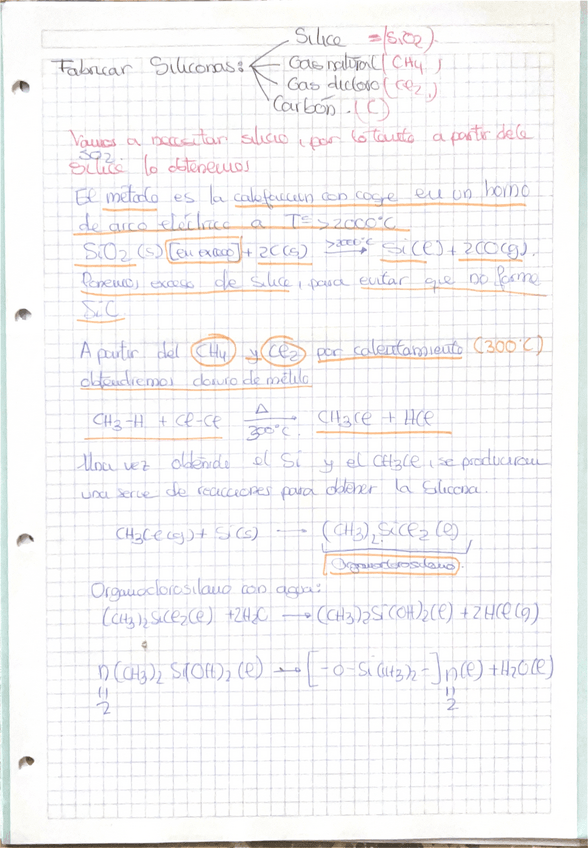 Sílice = (SiO2).
Fabricar Siliconas: Gas natural (CH4)
Gas dicloro (Cl2)
Carbón. (C)
Vamos a necesitar silicio, por lo tanto a partir de la
SiO2
sílice lo obtenemos
El método es la calefaccion con coge en un horno
de arco eléctrico a Tª >2000ºC
SiO2 (s) [en exceso] + 2C(s) >2000ºC → Si(l) + 2CO(g).
Ponemos exceso de sílice, para evitar que no forme
SiC
A partir del CH4 y Cl2 por calentamiento (300ºC)
obtendremos cloruro de metilo
CH3-H + Cl-Cl Δ → 300ºC. CH3Cl + HCl
Una vez obtenido el Si y el CH3Cl, se produciran
una serie de reacciones para obtener la Silicona.
CH3Cl(g) + Si(s) → (CH3)2SiCl2(l)
Organoclorosilano.
Organoclorosilano con agua:
(CH3)2SiCl2(l) + 2H2O → (CH3)2Si(OH)2(l) + 2HCl(g)
n(CH3)2Si(OH)2(l) → [-O-Si(CH3)2-]n(l) + H2O(l)
= =
2 2